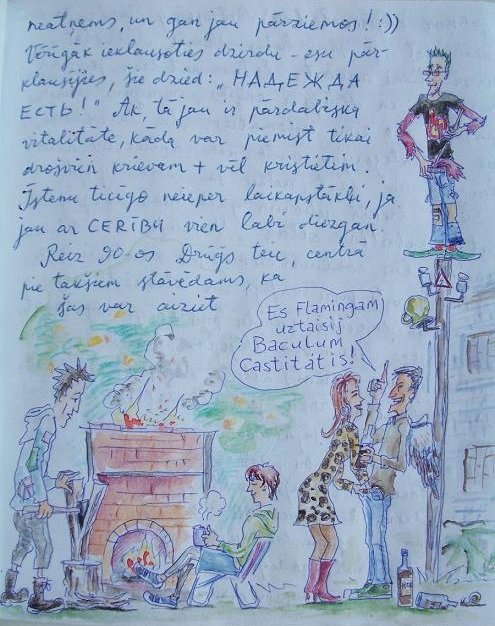 neatņems, un gan jau pārziemos! :))
Vērīgāk ieklausoties dzirdu – esu pār-
klausījies, šie dzied: „НАДЕЖДА
ЕСТЬ!" Ak, tā jau ir pārdabiska
vitalitāte, kāda var piemist tikai
drošvien krievam + vēl kristietim.
Īstenu ticīgo neieper laikapstākļi, ja
jau ar CERĪBU vien labi diezgan.
Reiz 90-os Drūģis teic, centrā
pie takšiem stāvēdams, ka
šas var aiziet
Es Flamingam
uztaisīj
Baculum
Castitātis!